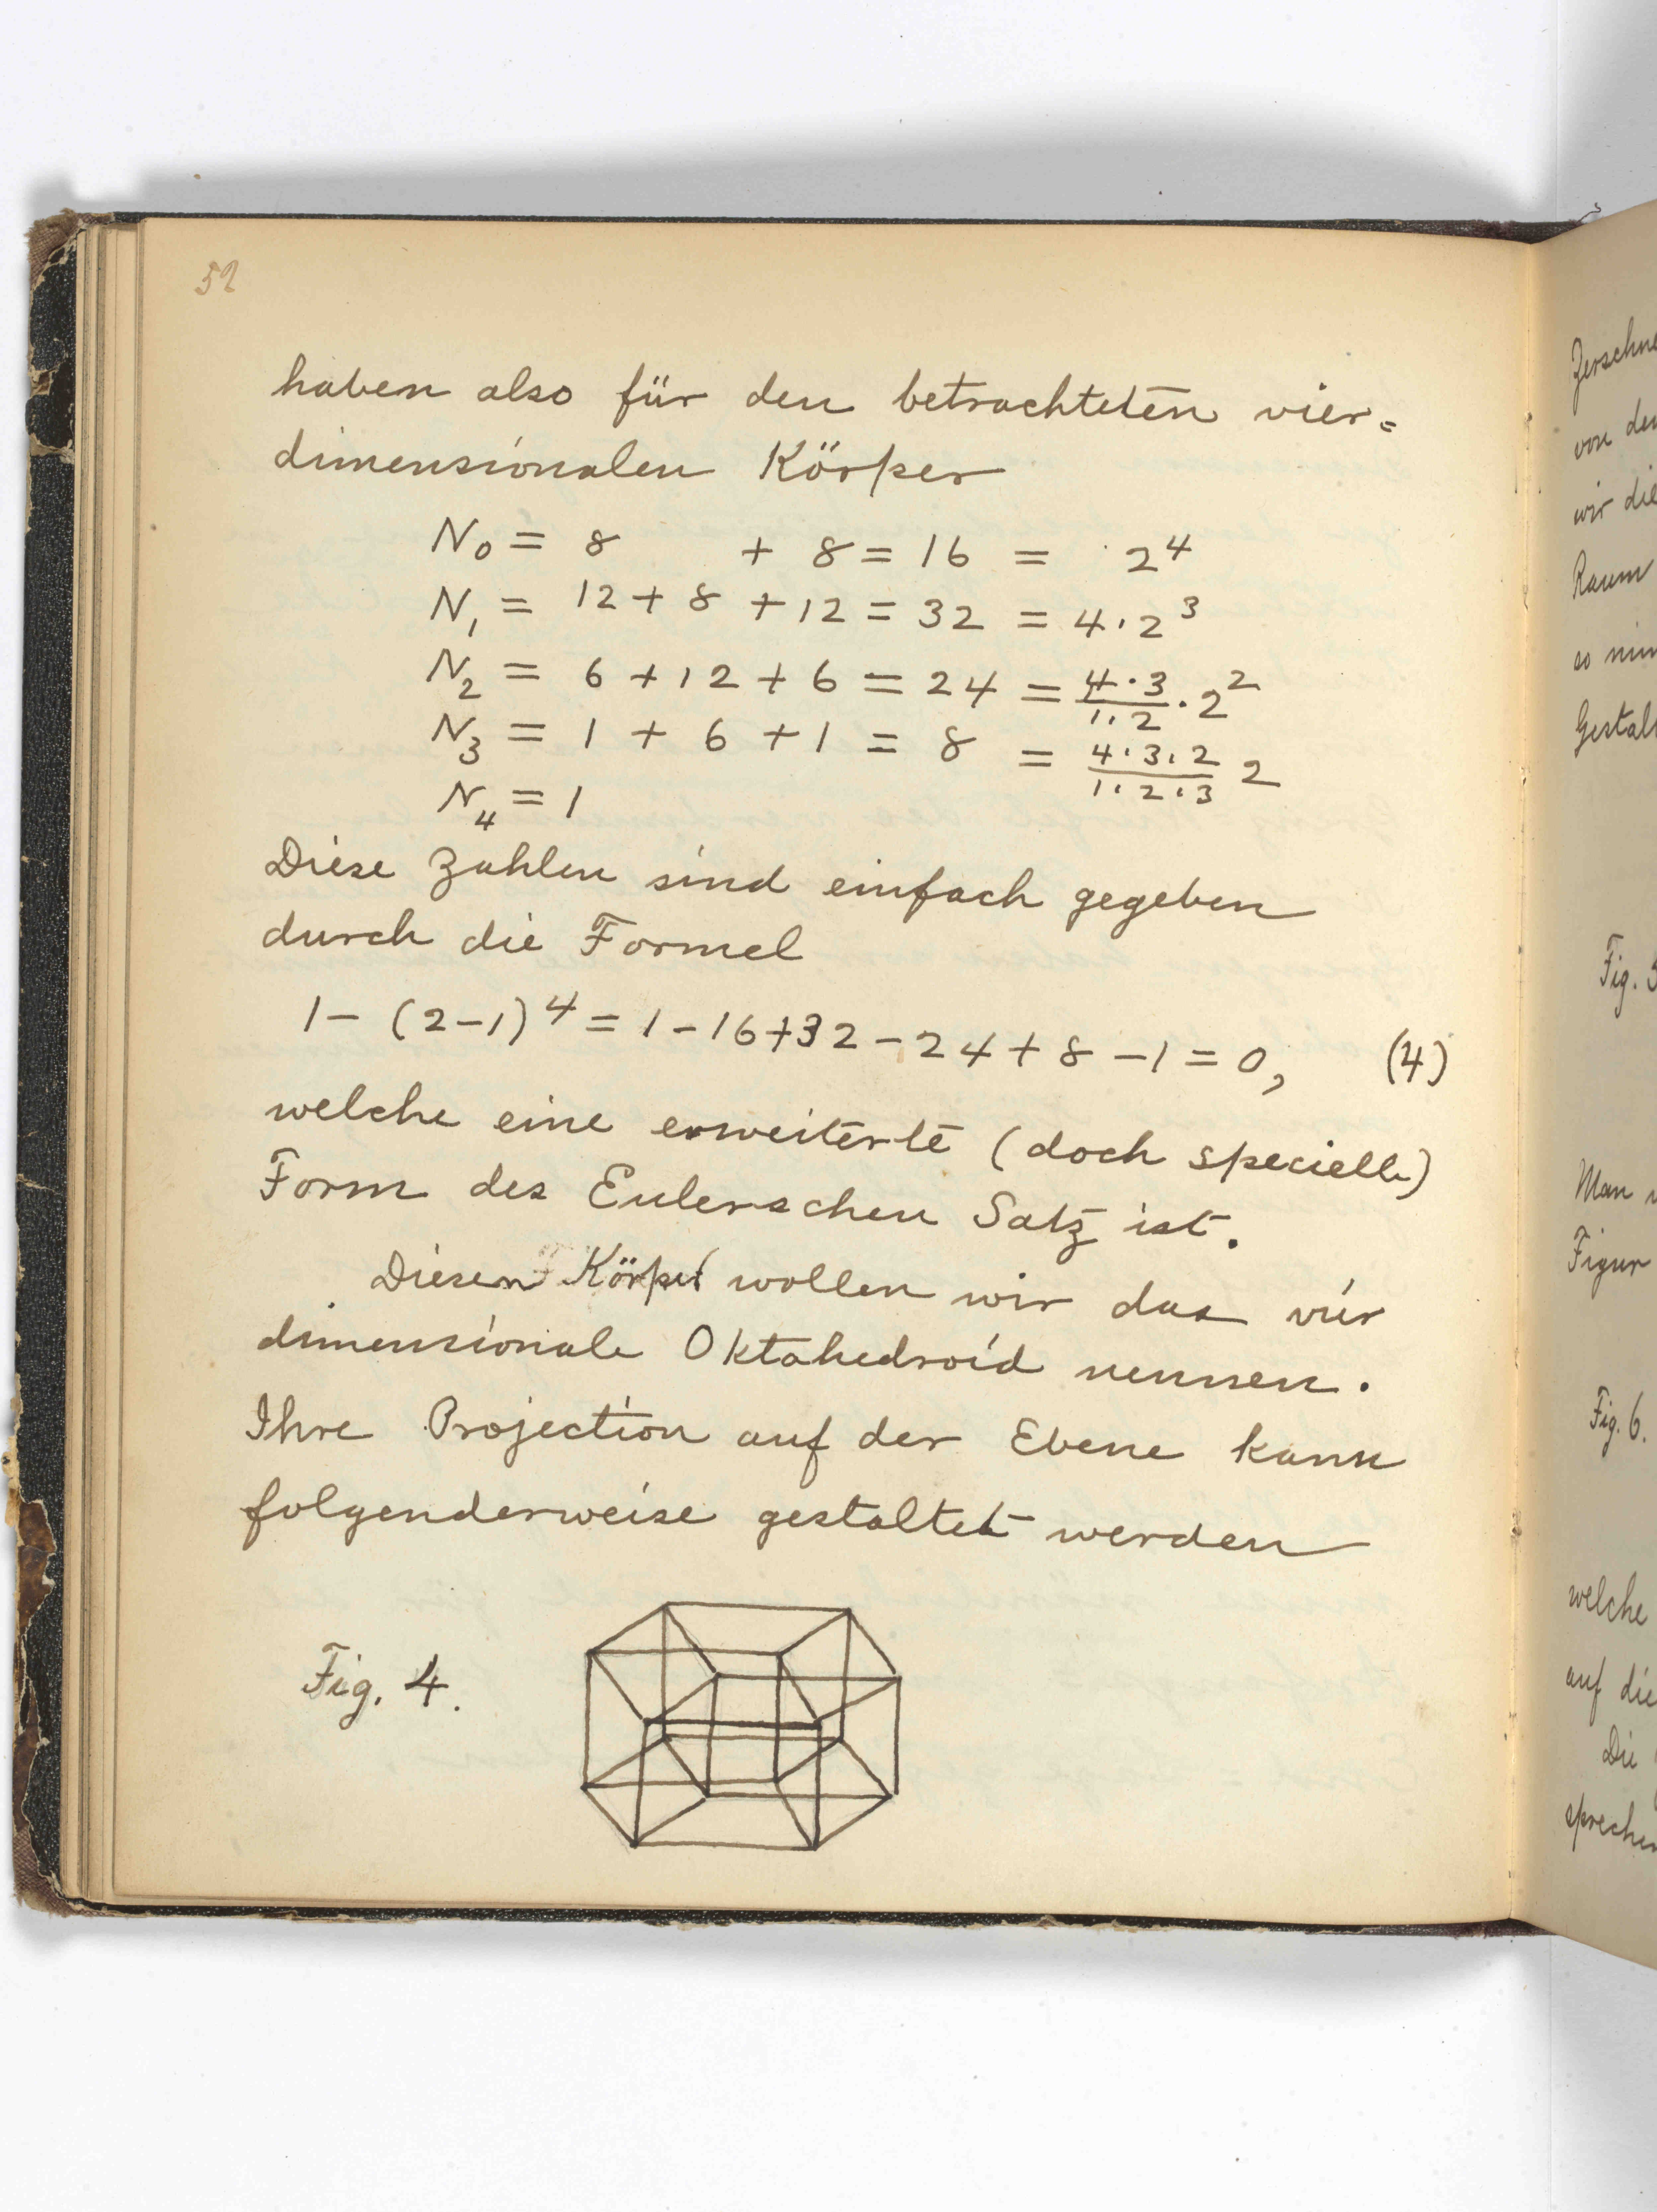 52
haben also für den betrachteten vier=
dimensionalen Körper
N₀ = 8 + 8 = 16 = 2⁴
N₁ = 12 + 8 + 12 = 32 = 4·2³
N₂ = 6 + 12 + 6 = 24 = (4·3)/(1·2) · 2²
N₃ = 1 + 6 + 1 = 8 = (4·3·2)/(1·2·3) 2
N₄ = 1
Diese Zahlen sind einfach gegeben
durch die Formel
1 − (2−1)⁴ = 1 − 16 + 32 − 24 + 8 − 1 = 0, (4)
welche eine erweiterte (doch specielle)
Form des Eulerschen Satz ist.
Diesen Körper wollen wir das vier
dimensionale Oktahedroid nennen.
Ihre Projection auf der Ebene kann
folgenderweise gestaltet werden
Fig. 4.
Zerschne
von den
wir die
Raum
so nim
Gestal
Fig. 5
Man
Figur
Fig. 6.
welche
auf die
Die
spreche